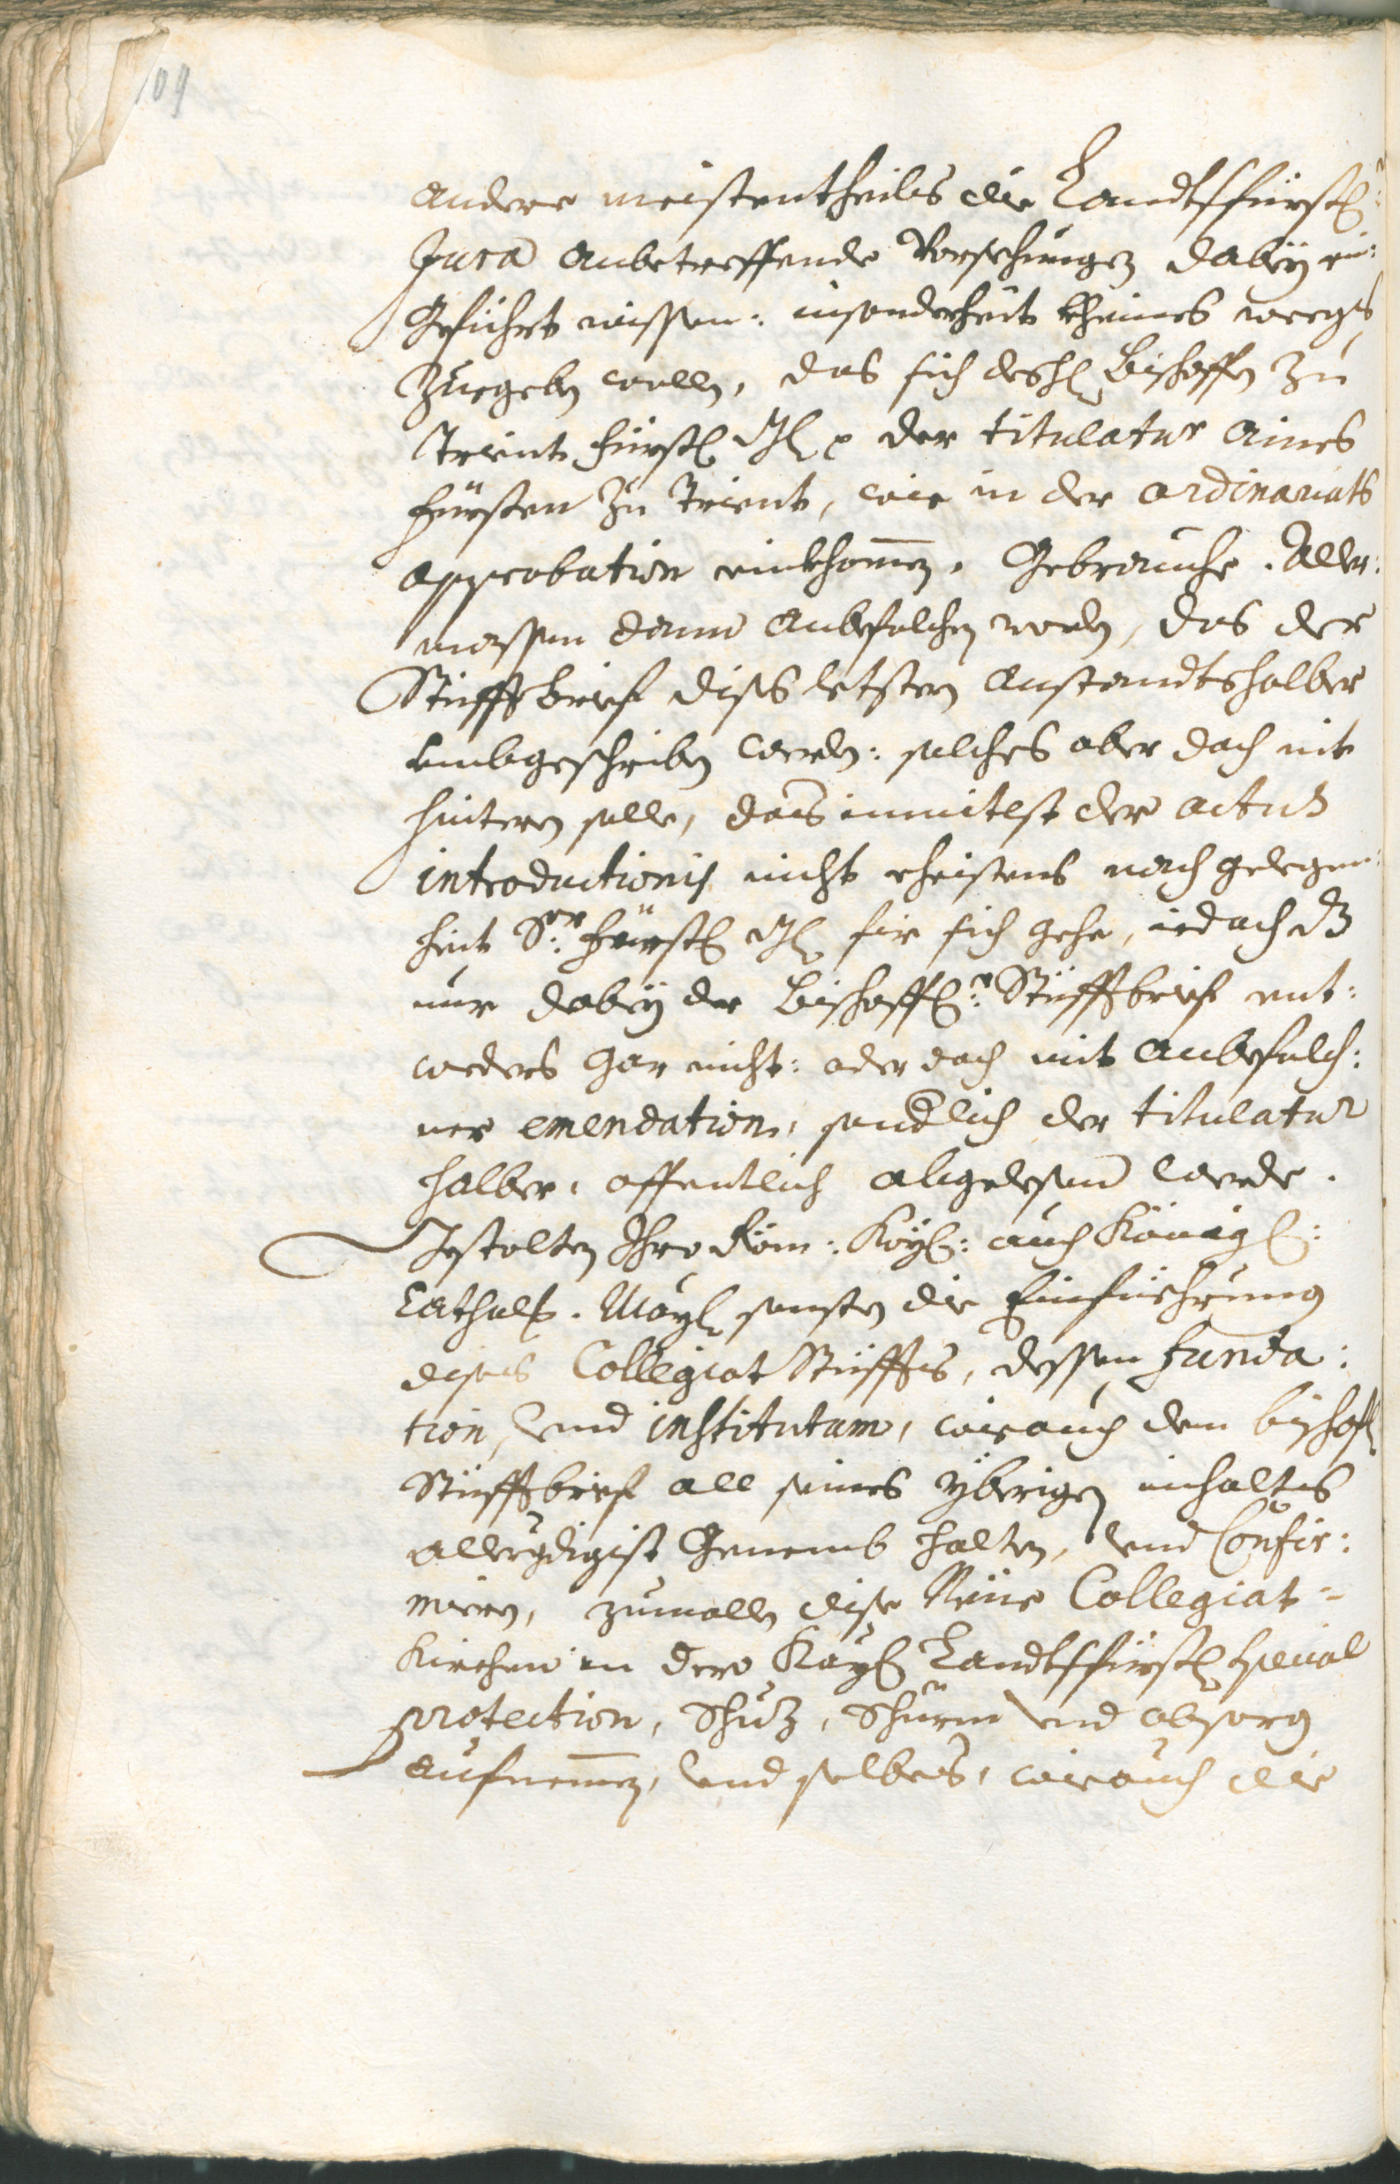 109
andere meistentheilß die Landtsfürstl:
Jura anbetreffende Vorsehungen dabeÿ ein:
geführt wissen: insonderheit kheines weegs
Zuegeben wollen, das sich deß H. Bischoffen Zu
Trient fürstl. Gl. der titulatur aines
fürsten Zu Trient, wie in der ordinariats
approbation einkhommen, gebrauche. Aller:
massen dann anbefolchen worden, das der
Stüfftbrief diss letstern anstandtshalber
umbgeschriben werde: solches aber doch nit
hintern solle, daß inmitlst der actus
introductionis nicht ehistens nach gelegen:
heit Sr: fürstl. Gl. für sich gehe, iedoch dz
nur dabeÿ der Bischoffl: Stüfftbrief ent:
weders gar nicht: oder doch mit anbefolch:
ner emendation, sondlich der titulatur
halber, offentlich abgelesen werde.
Gestalten Ihro Röm: Kaÿl: auch Königl:
Cathol. Maÿl. sonsten die Einfüehrung
dises Collegiat Stüffts, dessen funda:
tion, und institutum, wie auch den bischofl.
Stüfftbrief all seines ÿberigen inhaltes
allergdigist Genemb halten, und Confir:
mieren, zumallen dise Neue Collegiat-
Kirchen in dero Kaÿl. Landtsfürstl. special
protection, Schuz, Schürm und obsorg
aufnemmen, und selbes, wie auch die